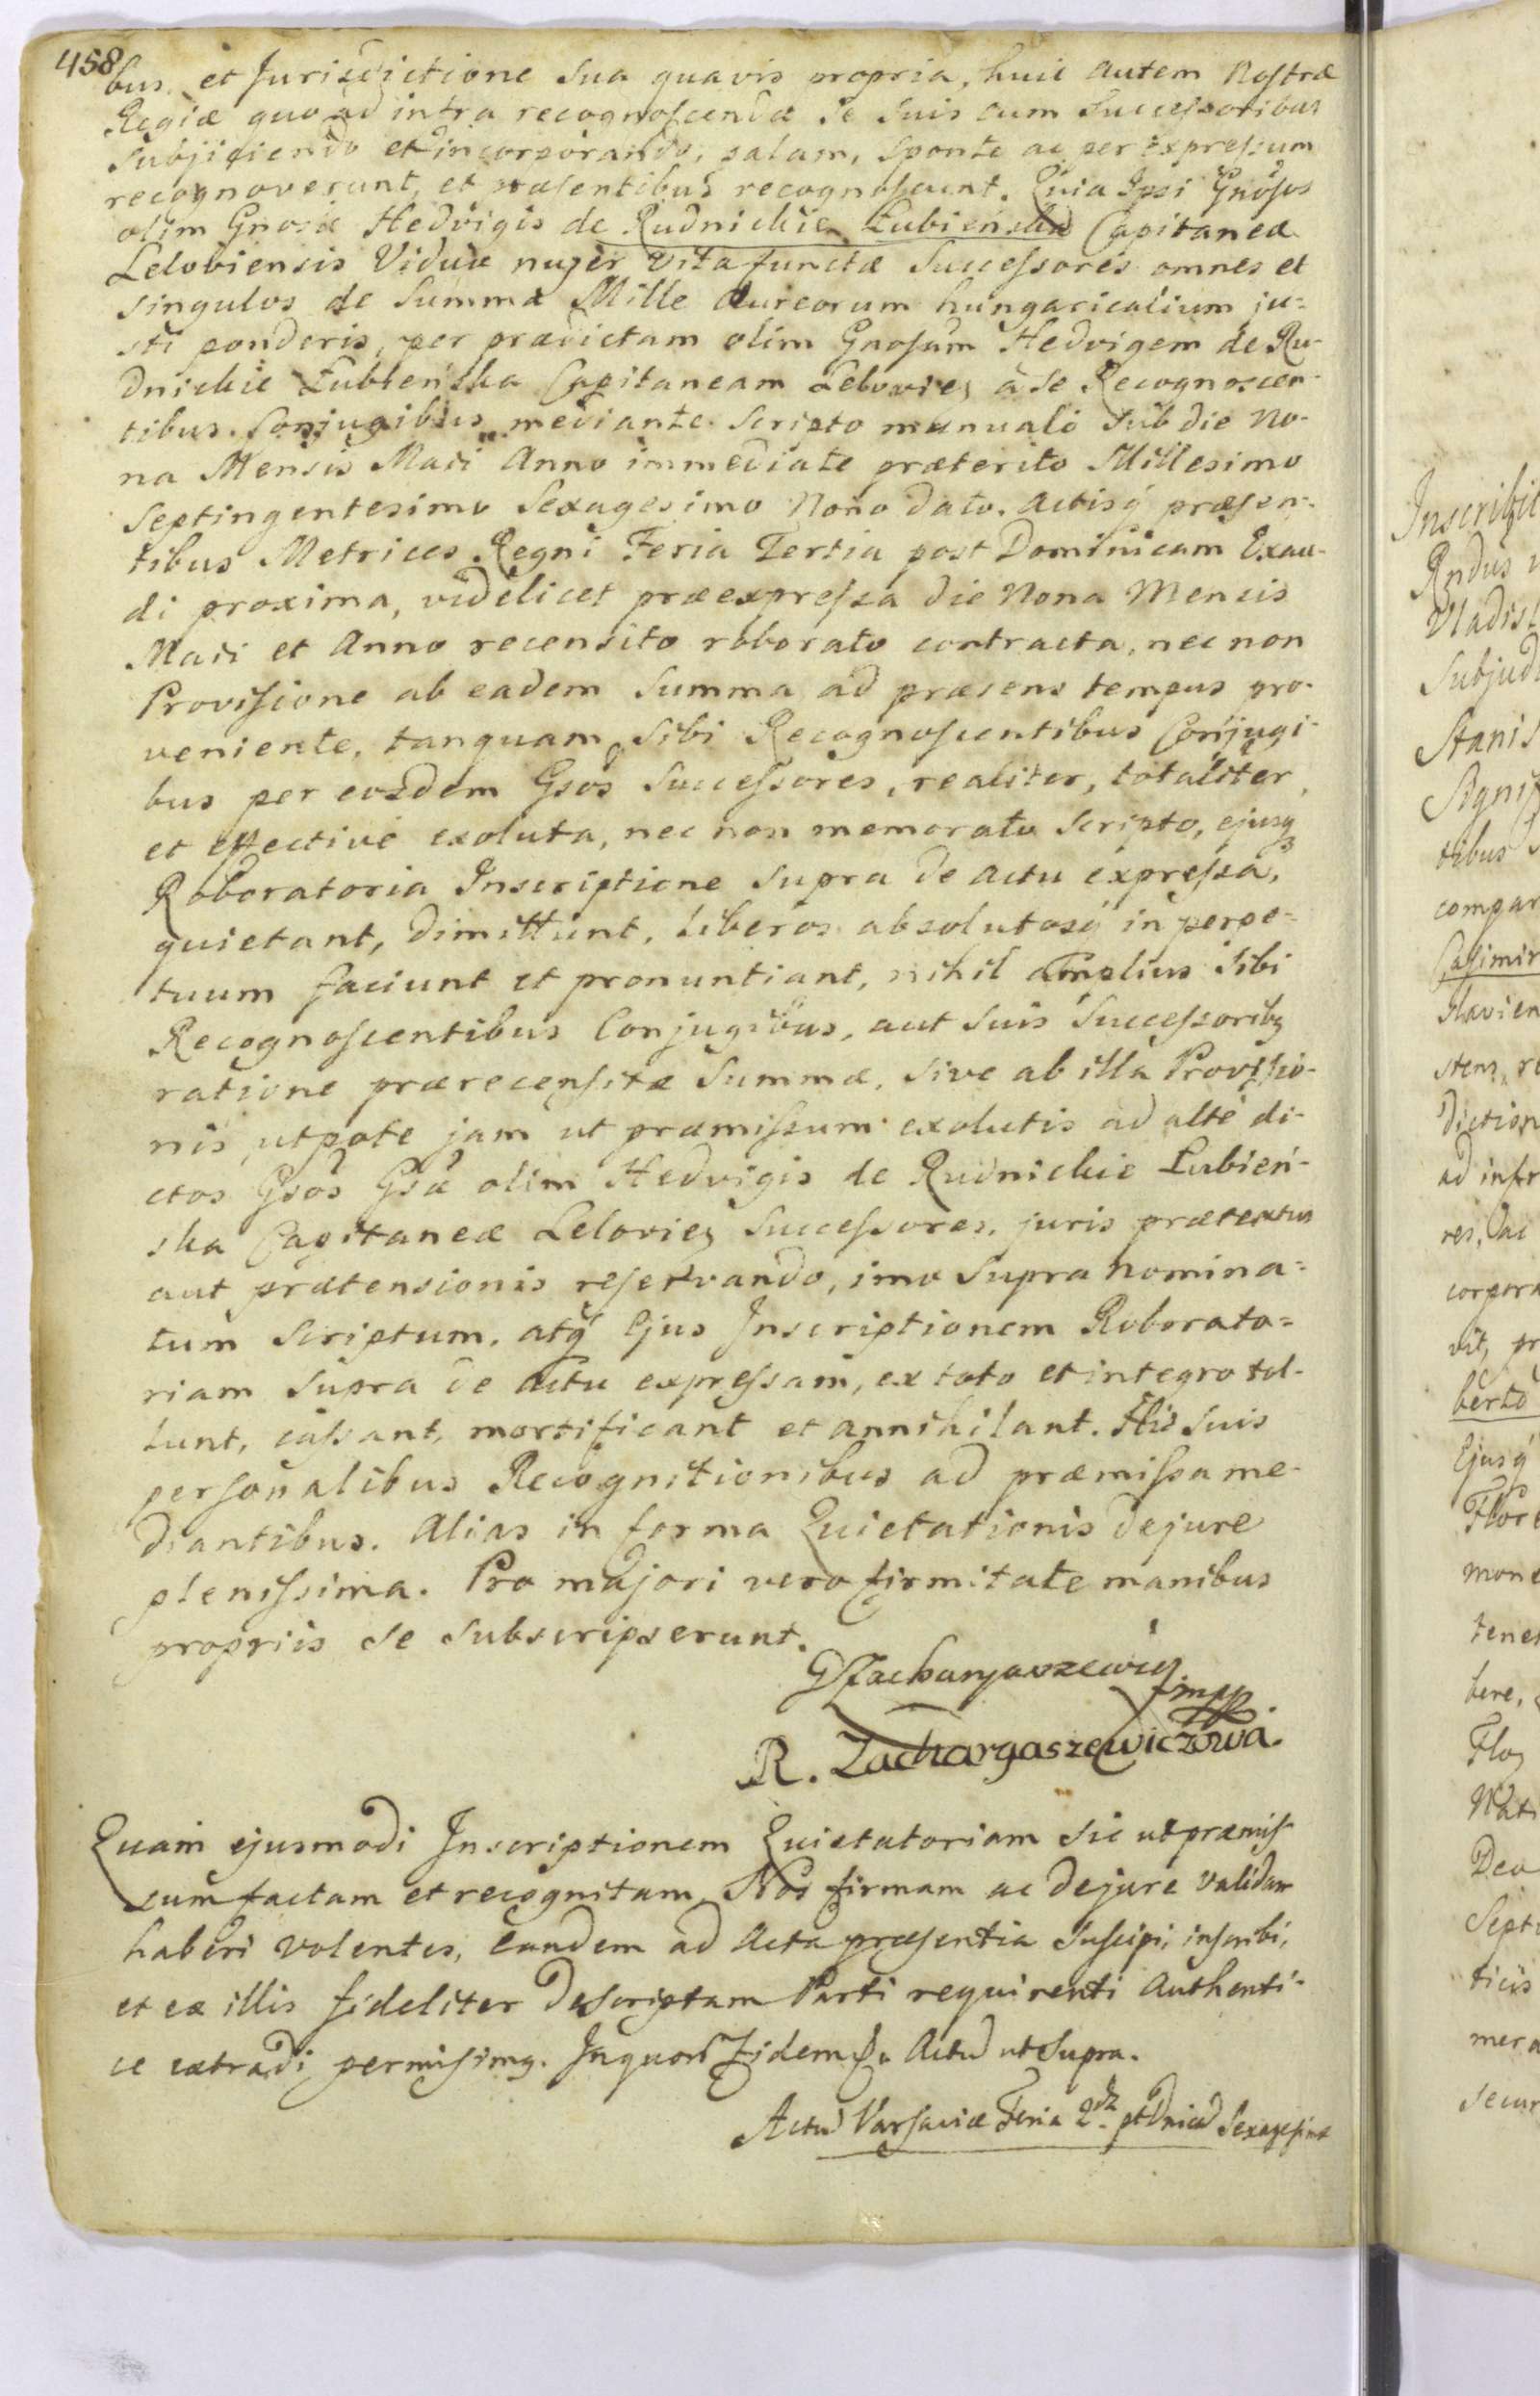 458
bus et Jurisdictione Sua quavis propria, huic autem Nostræ
Regiæ quo ad intra recognoscenda Se Suis cum Successoribus
Subjiciendo et incorporando, palam, Sponte ac per expressum
recognoverunt, et præsentibus recognoscunt. Quia Ipsi Gnosos
olim Gnosæ Hedvigis de Rudnickie Łubieńska Capitaneæ
Leloviensis Viduæ nuper vita functæ Successores omnes et
singulos de Summa Mille Aureorum hungaricalium ju-
sti ponderis, per prædictam olim Gnosam Hedvigem de Ru-
dnickie Łubieńska Capitaneam Lelovien a Se Recognoscen-
tibus Conjugibus mediante Scripto manuali Sub die No-
na Mensis Maii Anno immediate præterito Millesimo
Septingentesimo Sexagesimo Nono dato. Actisq præsen-
tibus Metrices Regni Feria Tertia post Dominicam Exau-
di proxima, videlicet præexpressa die Nona Mensis
Maii et Anno recensito roborato contracta, nec non
Provisione ab eadem Summa ad præsens tempus pro-
veniente, tanquam Sibi Recognoscentibus Conjugi-
bus per eosdem Gsos Successores, realiter, totaliter,
et effective exoluta, nec non memorato Scripto, ejusq
Roboratoria Inscriptione Supra de actu expressa,
quietant, Dimittunt, Liberos absolutosq in perpe-
tuum faciunt et pronuntiant, nihil amplius Sibi
Recognoscentibus Conjugibus, aut Suis Successoribq
ratione prærecensitæ Summæ, Sive ab illa Provisio-
nis, utpote jam ut præmissum exolutis ad alte di-
ctos Gsos Gsæ olim Hedvigis de Rudnickie Łubień-
ska Capitaneæ Lelovien Successores, juris prætextus
aut prætensionis reservando, imo Supra nomina-
tum Scriptum, atq Ejus Inscriptionem Roborato-
riam Supra de Actu expressam, ex toto et integro tol-
lunt, cassant, mortificant et annihilant. His Suis
personalibus Recognitionibus ad præmissa me-
diantibus. Alias in forma Quietationis de jure
plenissima. Pro majori vero firmitate manibus
propriis Se Subscripserunt.
Zacharyaszewicz mpp
R. Zacharyaszewiczowa.
Quam ejusmodi Inscriptionem Quietatoriam Sic ut præmis-
sum factam et recognitam, Nos firmam ac de jure validam
haberi volentes, Eandem ad Acta præsentia Suscipi, inscribi,
et ex illis fideliter descriptam Parti requirenti Authenti-
ce extradi permisimq. In quor Fidem Actu ut Supra.
Actu Varsaviæ Feria 2da pt Dnicã Sexagesimæ
Inscribit
Rndus
Vladisl
Subjud
Stanis
Signif
tibus
compar
Casimir
Flavien
stens, re
diction
ad infr
res, ac
corpora
vit, pr
berto
Ejusq
Flore
mone
tene
bere,
Flo
Nat
Deo
Septi
ticis
mera
Secur